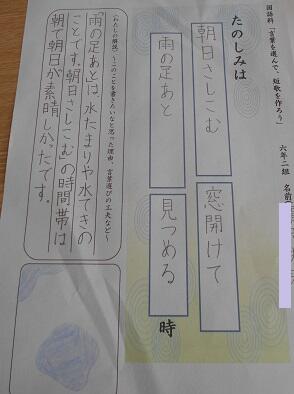 国語科「言葉を選んで、短歌を作ろう」
六年二組 名前(
たのしみは
朝日さしこむ
窓開けて
雨の足あと
見つめる
時
〈わたしの解説〉~このことを書きたいなと思った理由、言葉選びの工夫など~
「雨の足あとは、水たまりや水てきの
ことです。朝日さしこむ」の時間帯は
朝で朝日が素晴しかったです。